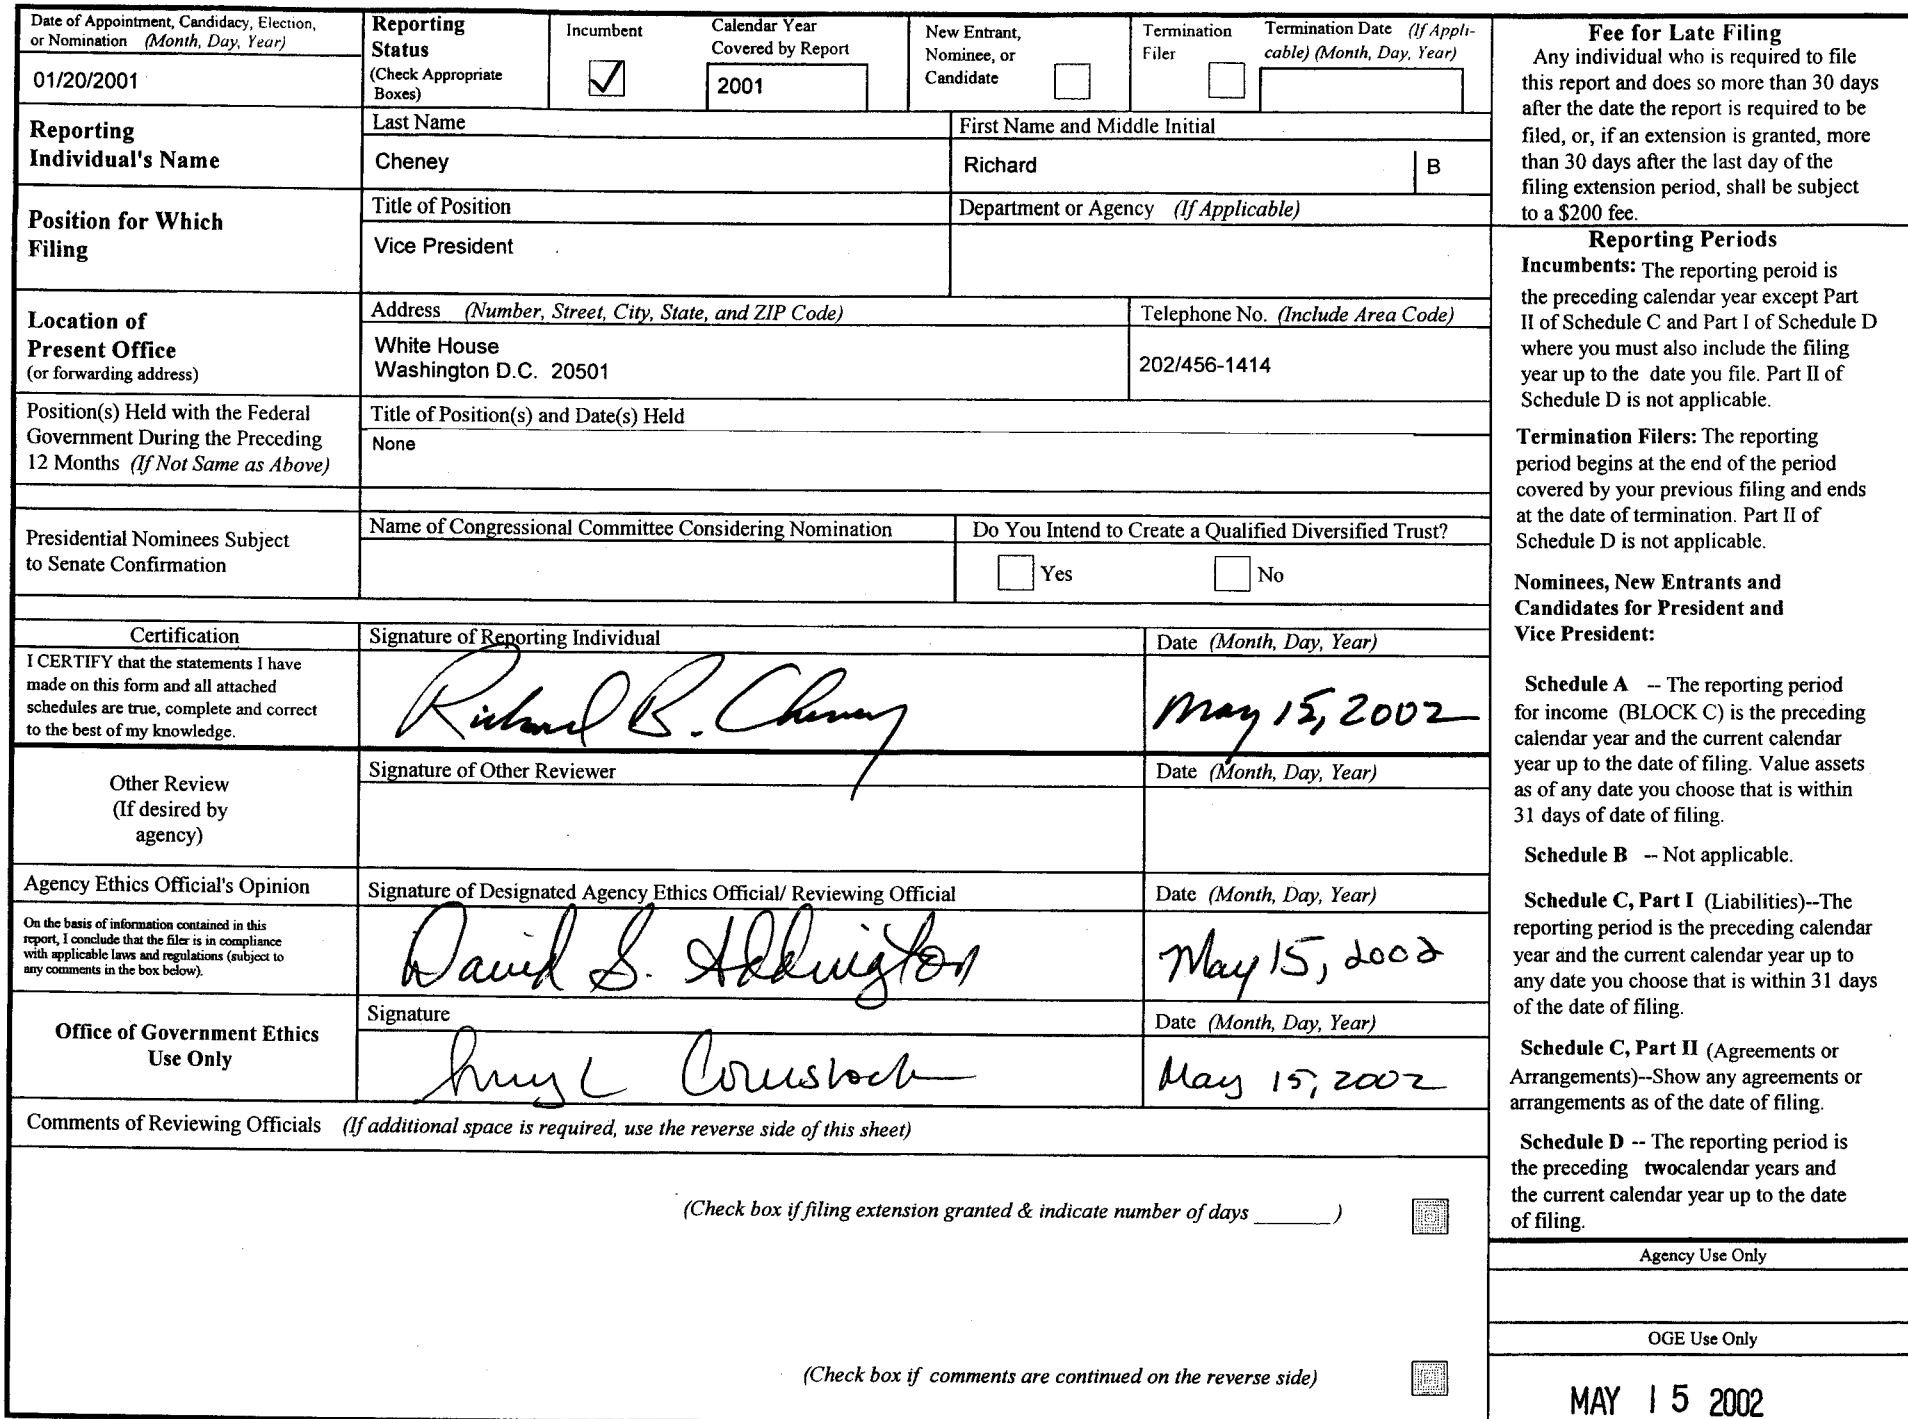 Date of Appointment, Candidacy, Election,
or Nomination (Month, Day, Year)
01/20/2001
Reporting
Status
(Check Appropriate
Boxes)
Incumbent
Calendar Year
Covered by Report
2001
New Entrant,
Nominee, or
Candidate
Termination
Filer
Termination Date (If Appli-
cable) (Month, Day, Year)
Reporting
Individual's Name
Last Name
Cheney
First Name and Middle Initial
Richard
B
Position for Which
Filing
Title of Position
Vice President
Department or Agency (If Applicable)
Location of
Present Office
(or forwarding address)
Address (Number, Street, City, State, and ZIP Code)
White House
Washington D.C. 20501
Telephone No. (Include Area Code)
202/456-1414
Position(s) Held with the Federal
Government During the Preceding
12 Months (If Not Same as Above)
Title of Position(s) and Date(s) Held
None
Presidential Nominees Subject
to Senate Confirmation
Name of Congressional Committee Considering Nomination
Do You Intend to Create a Qualified Diversified Trust?
Yes
No
Certification
I CERTIFY that the statements I have
made on this form and all attached
schedules are true, complete and correct
to the best of my knowledge.
Signature of Reporting Individual
Richard B. Cheney
Date (Month, Day, Year)
May 15, 2002
Other Review
(If desired by
agency)
Signature of Other Reviewer
Date (Month, Day, Year)
Agency Ethics Official's Opinion
On the basis of information contained in this
report, I conclude that the filer is in compliance
with applicable laws and regulations (subject to
any comments in the box below).
Signature of Designated Agency Ethics Official/ Reviewing Official
David S. Addington
Date (Month, Day, Year)
May 15, 2002
Office of Government Ethics
Use Only
Signature
L Comstock
Date (Month, Day, Year)
May 15, 2002
Comments of Reviewing Officials (If additional space is required, use the reverse side of this sheet)
(Check box if filing extension granted & indicate number of days _______ )
(Check box if comments are continued on the reverse side)
Fee for Late Filing
Any individual who is required to file
this report and does so more than 30 days
after the date the report is required to be
filed, or, if an extension is granted, more
than 30 days after the last day of the
filing extension period, shall be subject
to a $200 fee.
Reporting Periods
Incumbents: The reporting peroid is
the preceding calendar year except Part
II of Schedule C and Part I of Schedule D
where you must also include the filing
year up to the date you file. Part II of
Schedule D is not applicable.
Termination Filers: The reporting
period begins at the end of the period
covered by your previous filing and ends
at the date of termination. Part II of
Schedule D is not applicable.
Nominees, New Entrants and
Candidates for President and
Vice President:
Schedule A -- The reporting period
for income (BLOCK C) is the preceding
calendar year and the current calendar
year up to the date of filing. Value assets
as of any date you choose that is within
31 days of date of filing.
Schedule B -- Not applicable.
Schedule C, Part I (Liabilities)--The
reporting period is the preceding calendar
year and the current calendar year up to
any date you choose that is within 31 days
of the date of filing.
Schedule C, Part II (Agreements or
Arrangements)--Show any agreements or
arrangements as of the date of filing.
Schedule D -- The reporting period is
the preceding twocalendar years and
the current calendar year up to the date
of filing.
Agency Use Only
OGE Use Only
MAY 15 2002